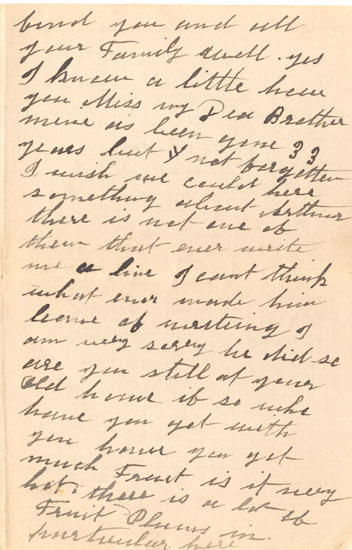 find you and all
your Family well. yes
I know a little how
you Miss my Dea Brother
mine as been gone 33
years but not forgotten
I wish we could here
something about Arthur
there is not one of
them that ever write
me a line I cant think
what ever made him
leave of writeing I
am very sorry he did so
are you still at your
old home if so who
have you got with
you have you got
much Fruit is it very
hot. there is a lot of
Fruit Plums in
particular here